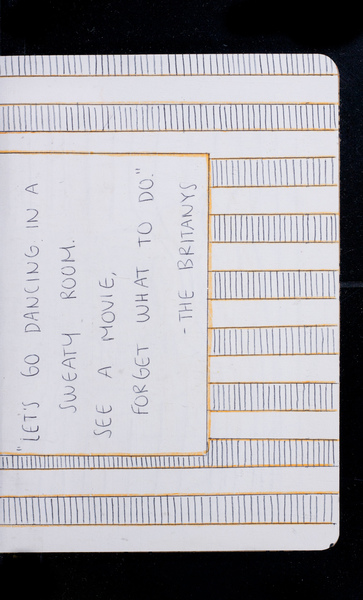 "LET'S GO DANCING IN A
SWEATY ROOM.
SEE A MOVIE,
FORGET WHAT TO DO."
-THE BRITANYS